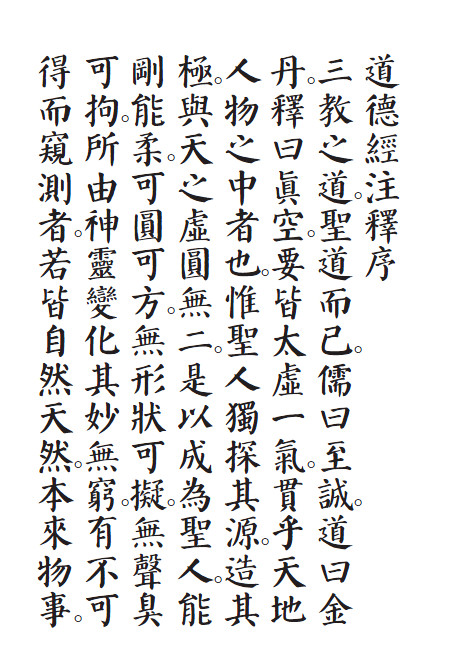 道德經注釋序
三教之道。聖道而已。儒曰至誠。道曰金
丹。釋曰眞空。要皆太虛一氣。貫乎天地
人物之中者也。惟聖人獨探其源。造其
極。與天之虛圓無二。是以成為聖人。能
剛能柔。可圓可方。無形狀可擬。無聲臭
可拘。所由神靈變化其妙無窮。有不可
得而窺測者。若皆自然天然。本來物事。